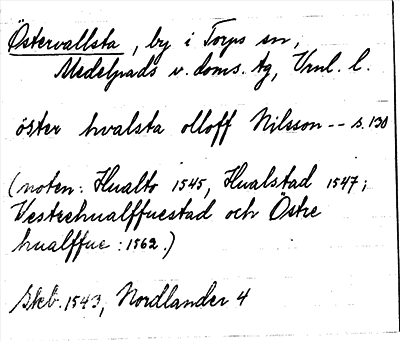 Östervallsta, by i Torps sn,
Medelpads v. doms. tg, Vrnl. l.
öster hvalsta olloff Nilsson -- s. 130
(noten: Hualto 1545, Hualstad 1547;
Vestrehualffuestad och Östre
hualffue: 1562.)
Skb. 1543, Nordlander 4